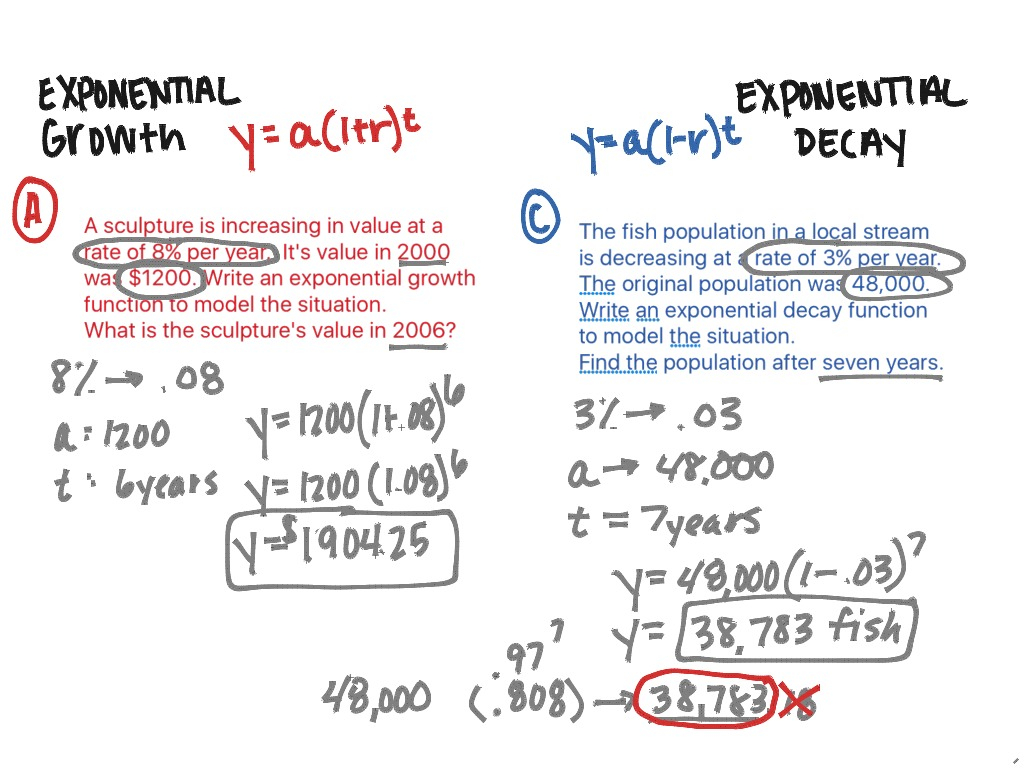 EXPONENTIAL
Growth y = a(1+r)^t
A
A sculpture is increasing in value at a
rate of 8% per year. It's value in 2000
was $1200. Write an exponential growth
function to model the situation.
What is the sculpture's value in 2006?
8% → .08
a = 1200
t = 6 years
y = 1200(1+.08)^6
y = 1200(1.08)^6
y = $190425
EXPONENTIAL
y = a(1-r)^t DECAY
C
The fish population in a local stream
is decreasing at a rate of 3% per year.
The original population was 48,000.
Write an exponential decay function
to model the situation.
Find the population after seven years.
3% → .03
a → 48,000
t = 7 years
y = 48,000(1-.03)^7
y = 38,783 fish
.97^7
48,000 (.808) → 38,783